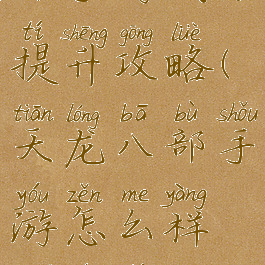 tí shēng gōng lüè
提升攻略(
tiān lóng bā bù shǒu
天龙八部手
yóu zěn me yàng
游怎么样